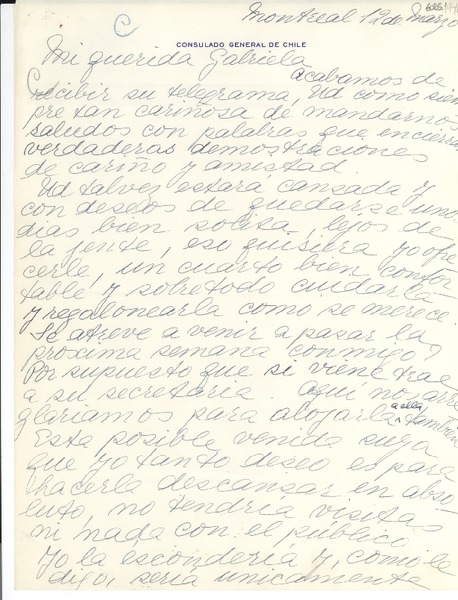 Montreal 12 de Marzo
CONSULADO GENERAL DE CHILE
Mi querida Gabriela
acabamos de
recibir su telegrama, Ud como siem
pre tan cariñosa de mandarnos
saludos con palabras que encierran
verdaderas demostraciones
de cariño y amistad.
Ud talvez estara cansada y
con deseos de quedarse unos
dias bien solita, lejos de
la jente, eso quisiera yo ofre
cerle, un cuarto bien confor
table y sobretodo cuidarla
y regalonearla como se merece.
Se atreve a venir a pasar la
próxima semana conmigo?
Por supuesto que si viene trae
a su secretaria. Aqui nos arre
glariamos para alojarla a ella tambien
Esta posible venida suya
que yo tanto deseo es para
hacerla descansar en abso
luto, no tendria visitas
ni nada con el público
yo la esconderia y, como le
digo, seria unicamente